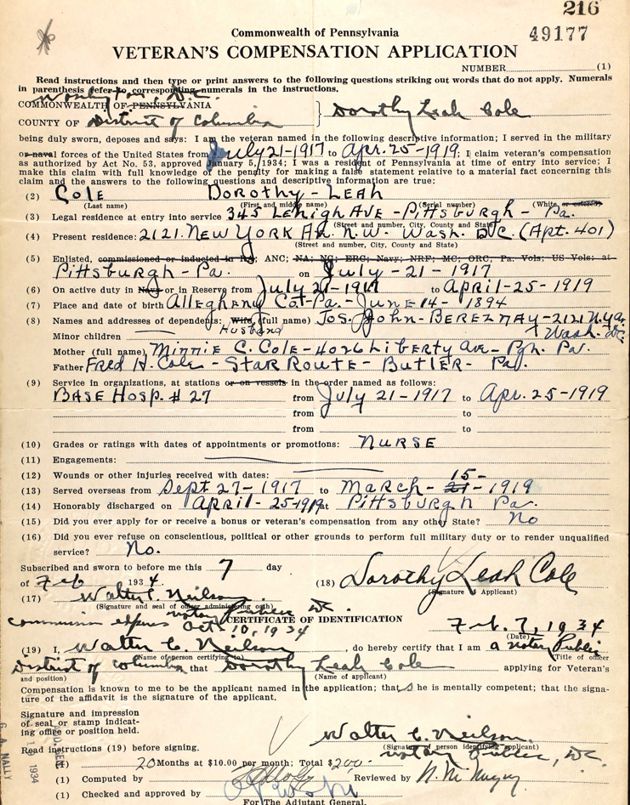 216
49177
Commonwealth of Pennsylvania
VETERAN'S COMPENSATION APPLICATION
NUMBER (1)
Read instructions and then type or print answers to the following questions striking out words that do not apply. Numerals
in parenthesis refer to corresponding numerals in the instructions.
Washington, D.C.
COMMONWEALTH OF PENNSYLVANIA
COUNTY OF District of Columbia } Dorothy Leah Cole
being duly sworn, deposes and says: I am the veteran named in the following descriptive information; I served in the military
or naval forces of the United States from July 21-1917 to Apr. 25-1919; I claim veteran's compensation
as authorized by Act No. 53, approved January 5, 1934; I was a resident of Pennsylvania at time of entry into service; I
make this claim with full knowledge of the penalty for making a false statement relative to a material fact concerning this
claim and the answers to the following questions and descriptive information are true:
(2) COLE DOROTHY - LEAH
(Last name) (First and middle name) (Serial number) (White or colored)
(3) Legal residence at entry into service 345 LEhigh AVE - PITTSBURGH - Pa.
(Street and number, City, County and State)
(4) Present residence: 2121 NEW YORK AV. N.W. Wash. D.C. (Apt. 401)
(Street and number, City, County and State)
(5) Enlisted, commissioned or inducted in RA; ANC; NA; NG; ERC; Navy; NRF; MC; ORC, Pa. Vols; US Vols: at
Pittsburgh - Pa. on July - 21 - 1917
(6) On active duty in Navy or in Reserve from July 21-1917 to April - 25 - 1919
(7) Place and date of birth Alleghany Co.-Pa. - June 14 - 1894
(8) Names and addresses of dependents: Wife (full name) Jos. John - BEREZNAY - 2121 N.Y. Av.
Husband
Minor children Wash. D.C.
Mother (full name) Minnie C. Cole - 4026 Liberty Ave - Pgh. Pa.
Father Fred H. Cole - STAR ROUTE - Butler - Pa.
(9) Service in organizations, at stations or on vessels in the order named as follows:
BASE HOSP. # 27 from July 21-1917 to Apr. 25-1919
from to
from to
(10) Grades or ratings with dates of appointments or promotions: NURSE
(11) Engagements:
(12) Wounds or other injuries received with dates:
15-
(13) Served overseas from Sept 27 - 1917 to March - 21 - 1919
(14) Honorably discharged on April - 25-1919 at Pittsburgh Pa.
(15) Did you ever apply for or receive a bonus or veteran's compensation from any other State? No
(16) Did you ever refuse on conscientious, political or other grounds to perform full military duty or to render unqualified
service? No.
Subscribed and sworn to before me this 7 day
of Feb 1934. (18) Dorothy Leah Cole
(Signature of Applicant)
(17) Walter C. Neilson
(Signature and seal of officer administering oath)
Notary Public D.C.
Commission expires Oct 10, 1934
CERTIFICATE OF IDENTIFICATION
Feb. 7, 1934
(Date)
(19) I, Walter C. Neilson, do hereby certify that I am a Notary Public
(Name of person certifying) (Title of officer
District of Columbia that Dorothy Leah Cole applying for Veteran's
and position) (Name of applicant)
Compensation is known to me to be the applicant named in the application; that she is mentally competent; that the signa-
ture of the affidavit is the signature of the applicant.
Signature and impression
of seal or stamp indicat-
ing office or position held.
Walter C. Neilson
(Signature of person identifying applicant)
Notary Public, D.C.
Read instructions (19) before signing.
20 Months at $10.00 per month; Total $200.-
(1) Computed by Reviewed by
(1) Checked and approved by
For The Adjutant General.
1934
G. A. NALLY